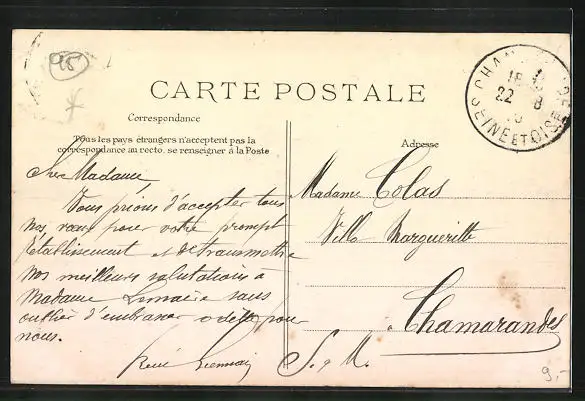 95
CARTE POSTALE
Correspondance
Tous les pays étrangers n'acceptent pas la
correspondance au recto. se renseigner à la Poste
Adresse
CHAM
18
22 8
SEINE ET OISE
Chère Madame
Vous prions d'accepter tous
nos vœux pour votre prompt
rétablissement et de transmettre
nos meilleurs salutations à
Madame Lemaire sans
oublier d'embrasser pour
nous.
René
Madame Colas
Villa Margueritte
à Chamarandes
S. & M.
9,-